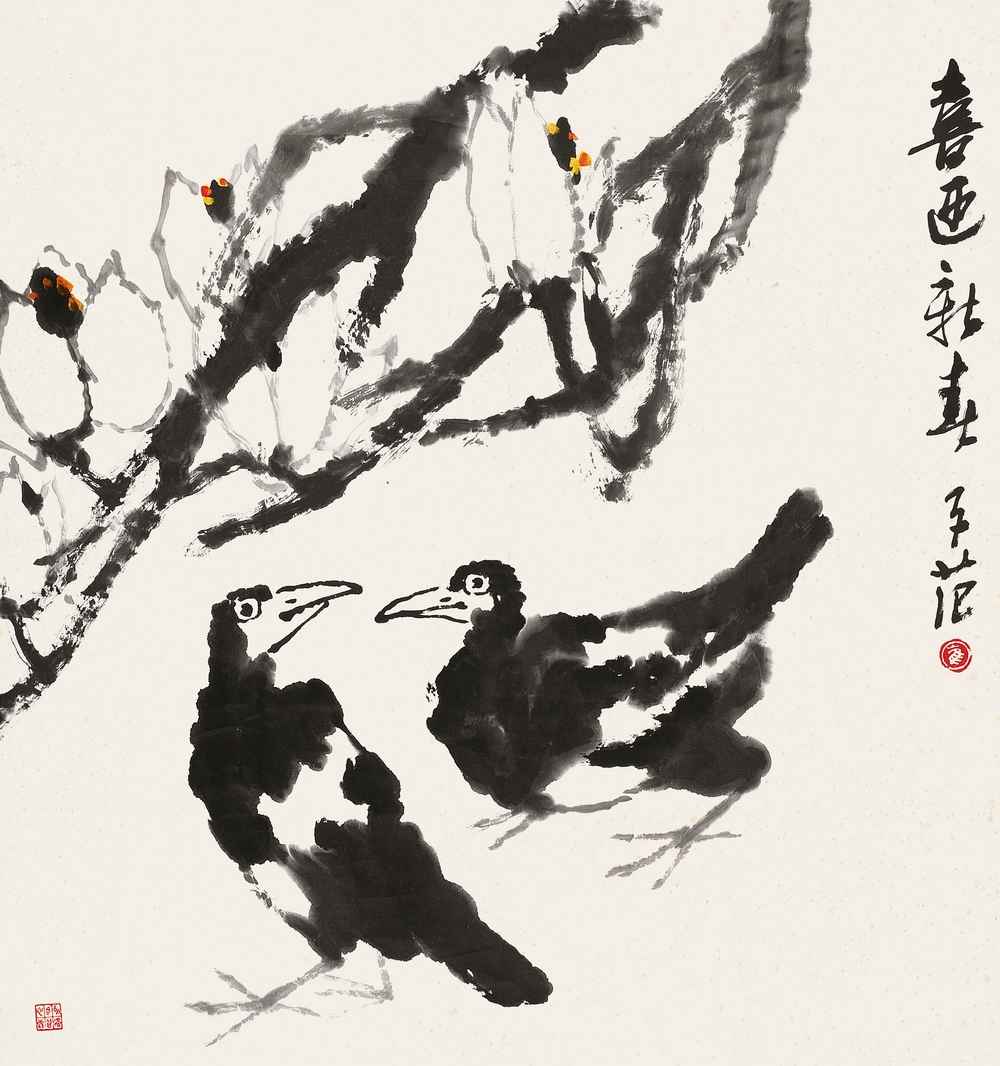 喜迎新春 子范